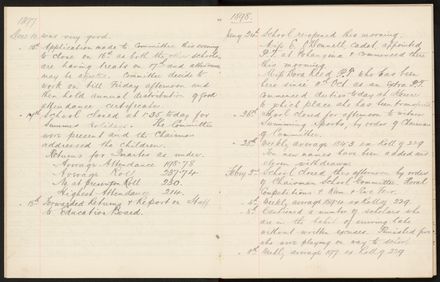 1897
Dec 10 was very good.
" 15th Application made to Committee this evening
to close on 16th as both the other schools
are having treats on 17th and attendance
may be affected. Committee decide to
work on till Friday afternoon and
then hold annual distribution of good
attendance certificates.
" 17th School closed at 1.35 today for
Summer holidays. The Committee
were present and the Chairman
addressed the children.
Returns for Quarter as under.
Average Attendance 198.78
Average Roll 237.74.
No. at present on Roll 230.
Highest Attendance 220.
" 18th Forwarded Returns & Report on Staff
to Education Board.
1898.
Jany 24th School reopened this morning.
Miss E. O'Donnell cadet appointed
P.T. at and commenced there
this morning.
Miss Dora Reed P.T. who has been
here since Octr as an Extra P.T.
commenced duties today at
to which place she has been transferred
" 26th School closed for afternoon to witness
Swimming Sports, by order of Chairman
of Committee.
" 28th Weekly average 184.3 ex Roll of 220
Ten new names have been added and
eleven withdrawn.
Feby 3rd School closed this afternoon by order
of Chairman School Committee, Local
Competitions
" 4th Weekly average ex Roll of 229.
" 8th a number of scholars who
are in the habit of coming late
without written excuses. Punished five
who were playing on way to school.
" 11th Weekly average 197 ex Roll of 229